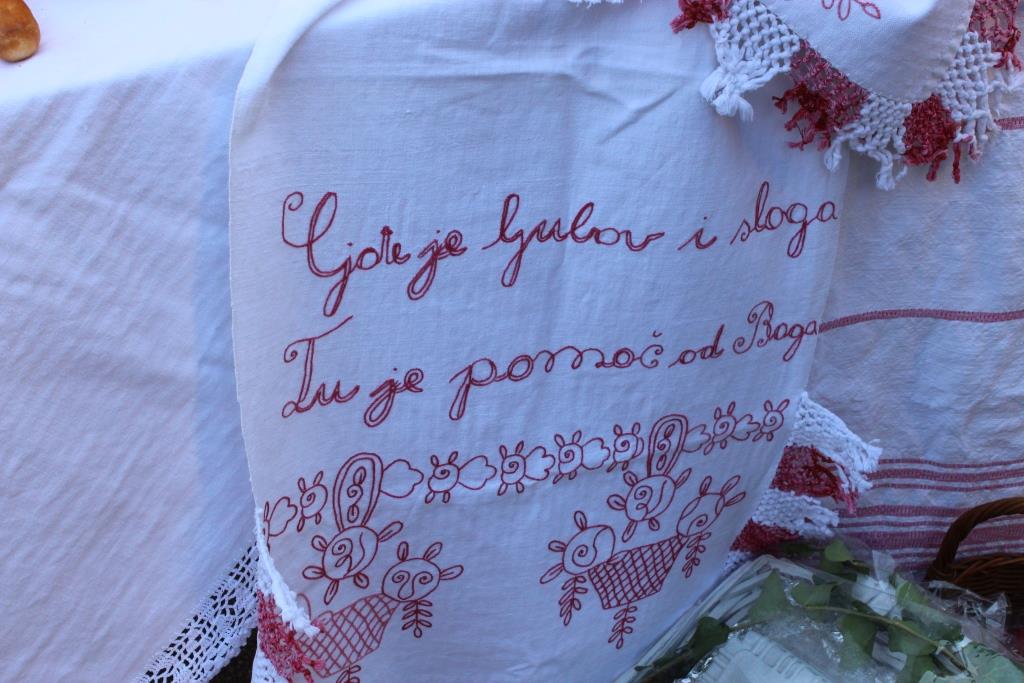 Gdje je ljubov i sloga
Tu je pomoč od Boga